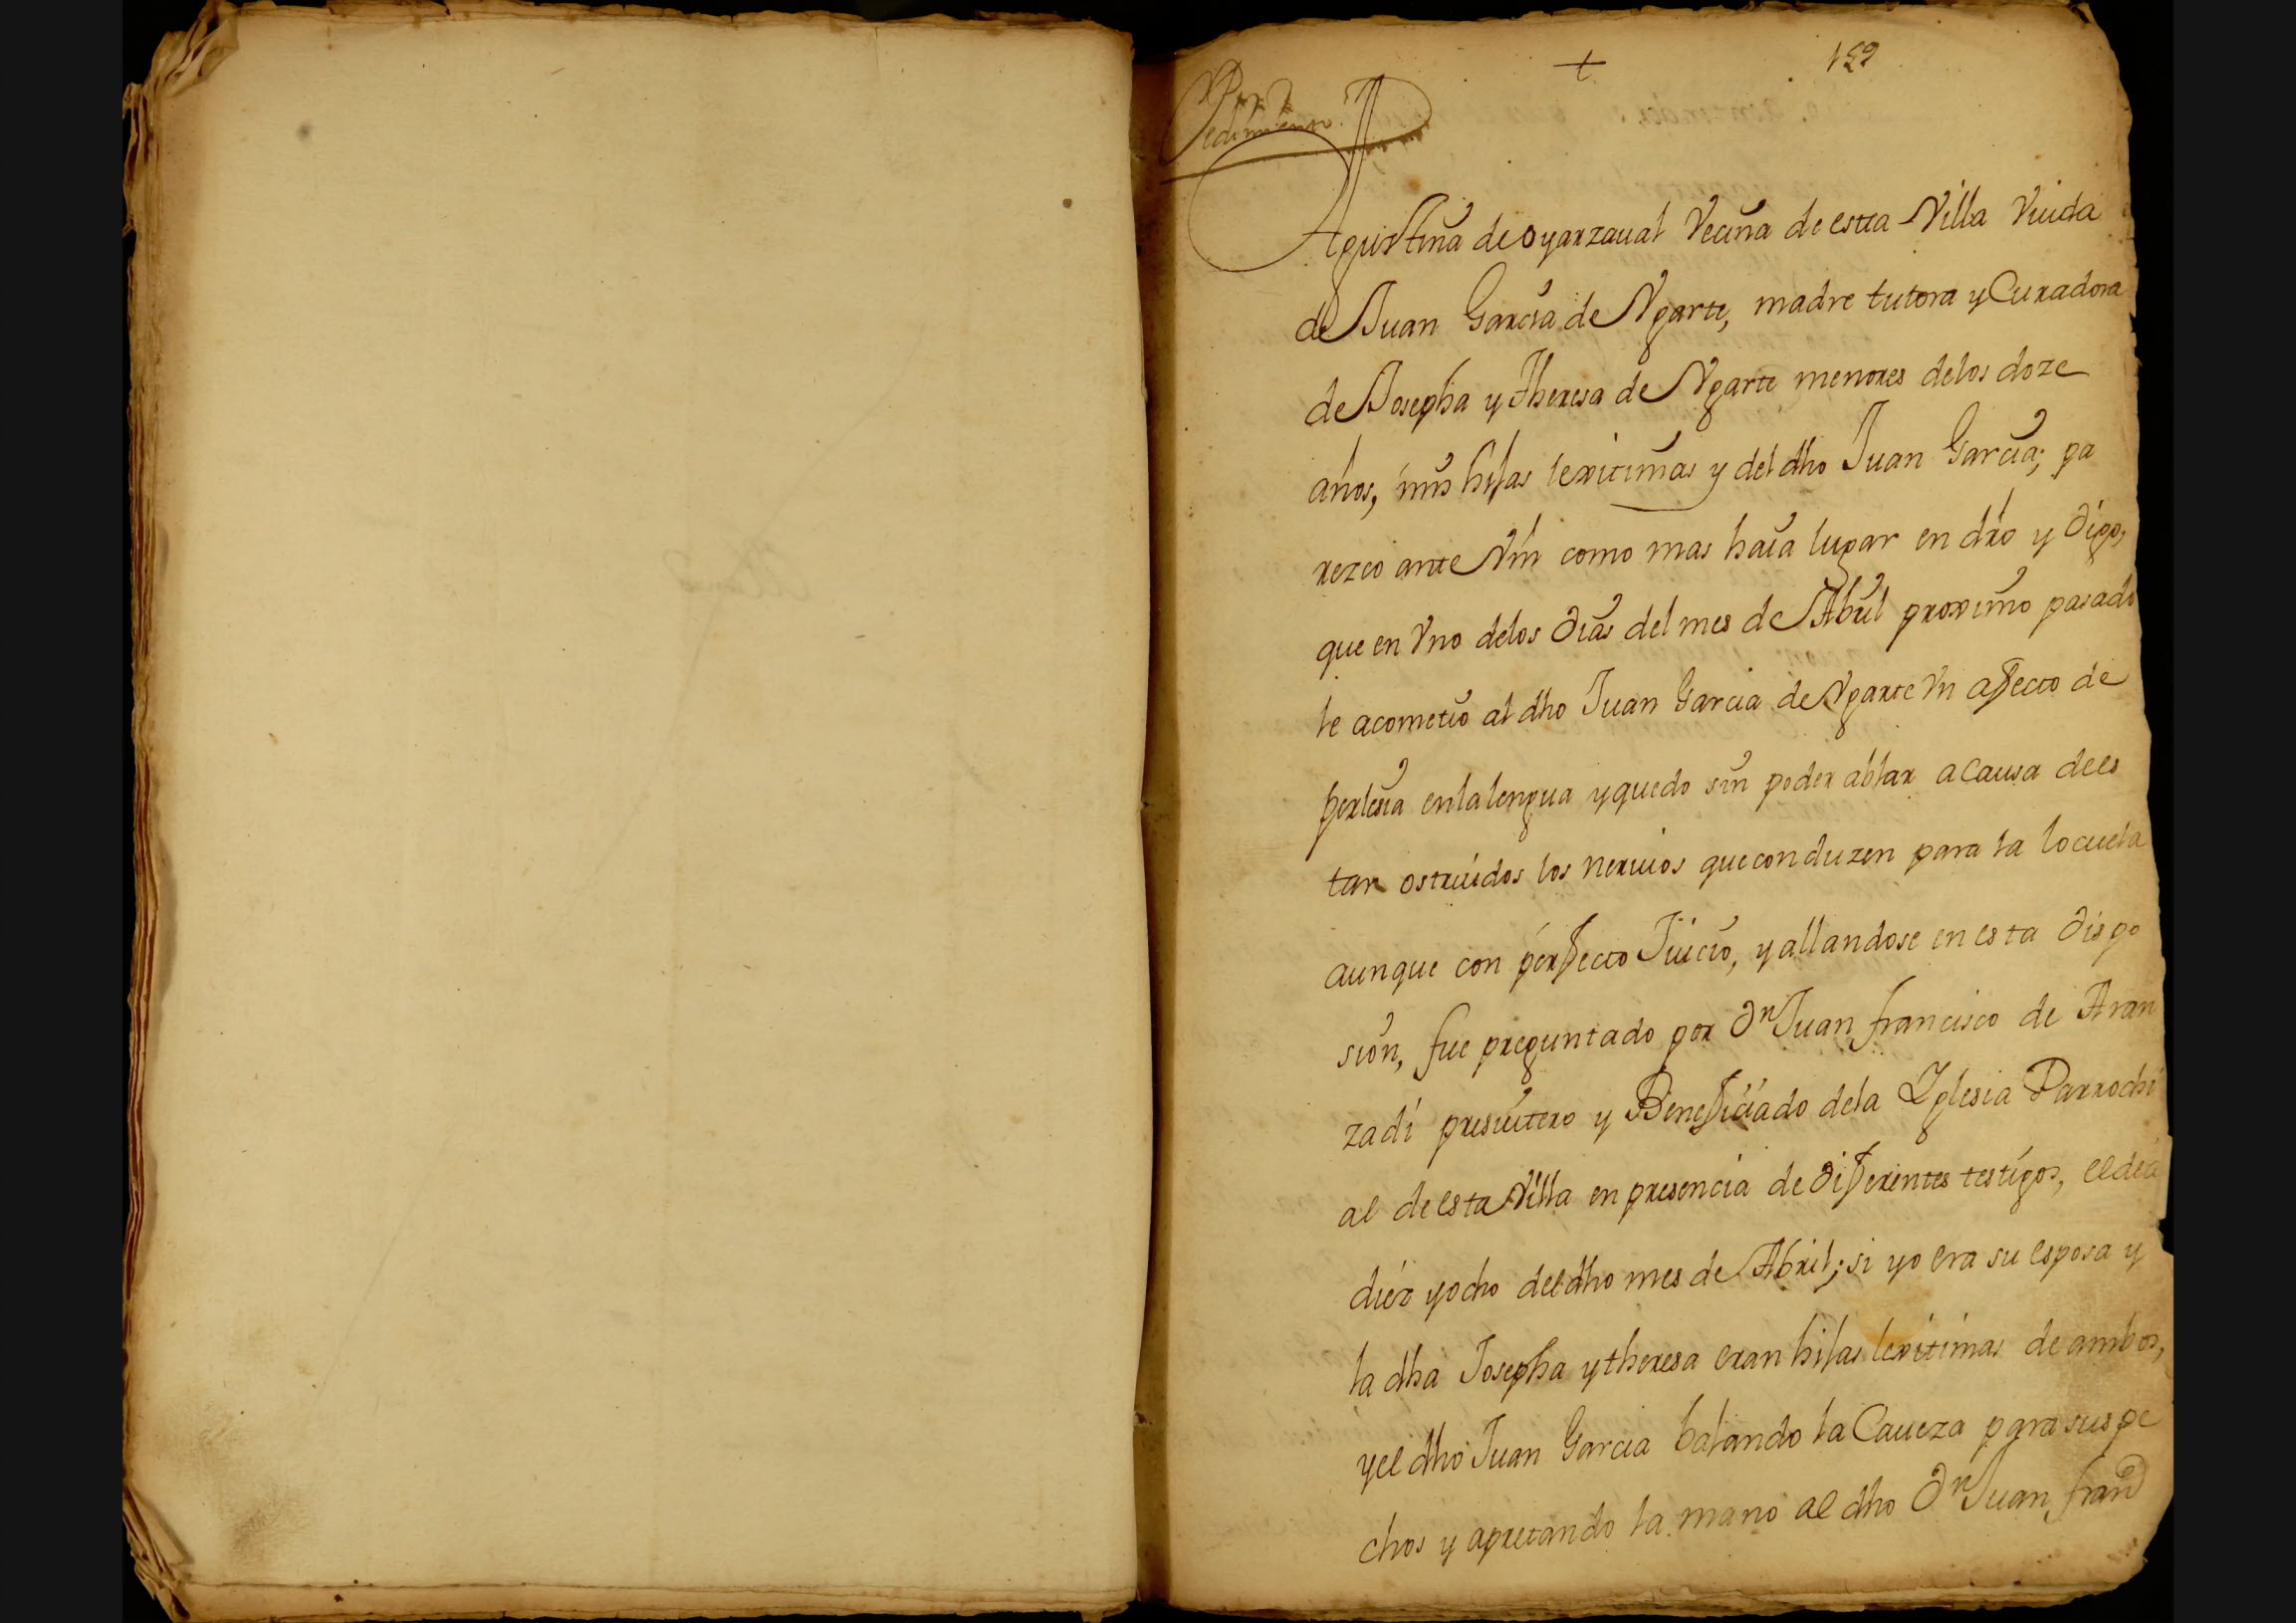 +
Pedimiento
Agustina de oyarzaual Vecina de esta Villa Viuda
de Juan Garcia de Vgarte, madre tutora y Curadora
de Josepha y Theresa de Vgarte menores delos doze
años, mis hijas lexitimas y del dho Juan Garcia; pa
rezco ante Vm como mas haia lugar en dro y digo,
que en Vno delos dias del mes de Abril proximo pasado
le acometio al dho Juan Garcia de Vgarte Vn afecto de
perlesia enlalengua yquedo sin poder ablar acausa dees
tar ostruidos los neruios queconduzen para la locuela
aunque con perfecto Juicio, yallandose en esta dispo
sion, fue preguntado por Dn Juan francisco de Aran
zadi presuitero y Beneficiado dela Yglesia Parrochi
al de esta Villa en presencia de diferentes testigos, eldia
diez yocho deldho mes de Abril; si yo era su esposa y
la dha Josepha ytheresa eran hijas lexitimas de ambos,
yel dho Juan Garcia bajando la Caueza para sus pe
chos y apretando la mano al dho Dn Juan franco